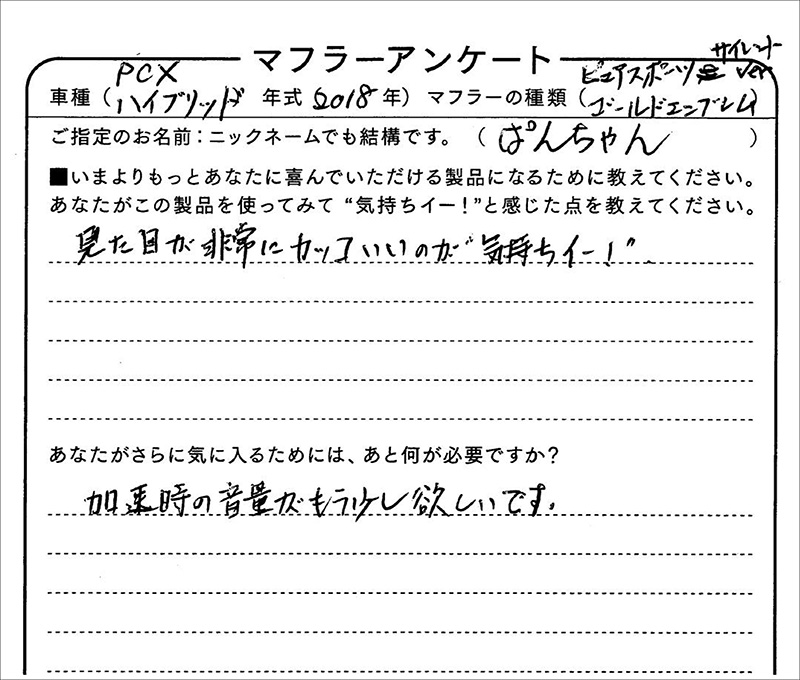 マフラーアンケート
車種（PCX ハイブリッド 年式 2018年）マフラーの種類（ピュアスポーツ サイレントver ゴールドエンブレム
ご指定のお名前：ニックネームでも結構です。（ ぱんちゃん ）
■いまよりもっとあなたに喜んでいただける製品になるために教えてください。
あなたがこの製品を使ってみて“気持ちイー！”と感じた点を教えてください。
見た目が非常にカッコいいのが“気持ちイー！”.
あなたがさらに気に入るためには、あと何が必要ですか？
加速時の音量がもう少し欲しいです。